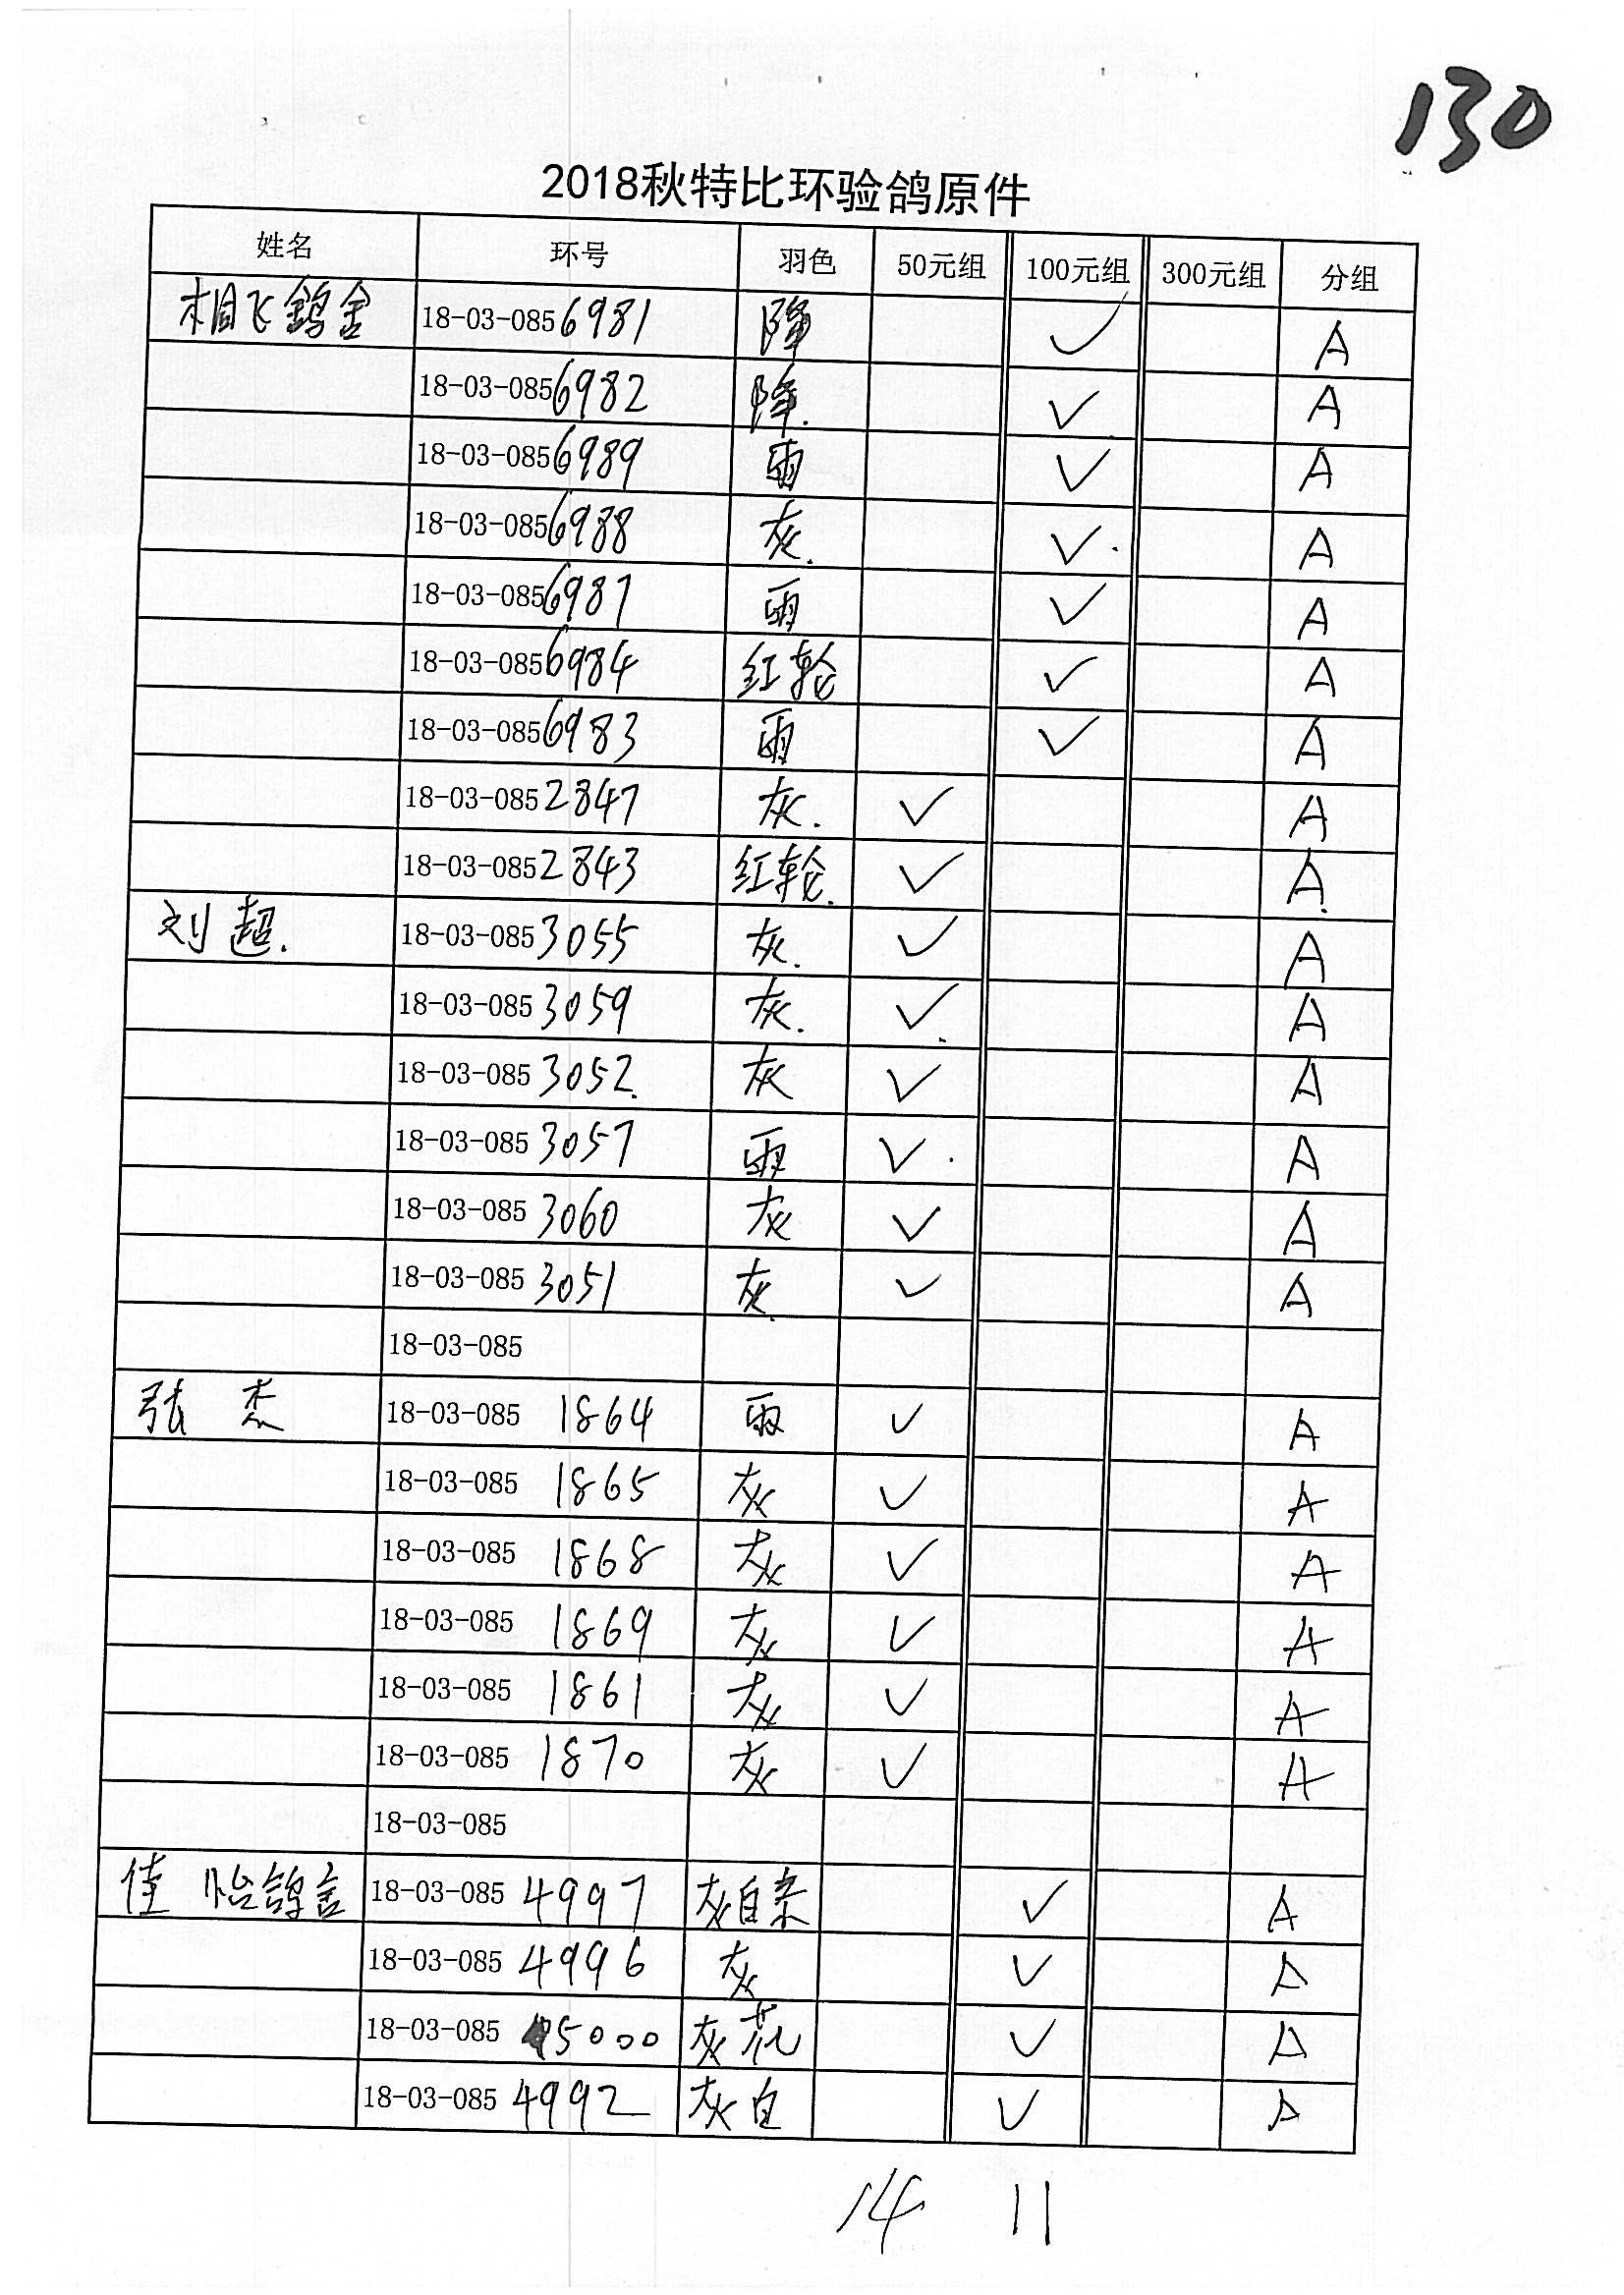 130
2018秋特比环验鸽原件
姓名 环号 羽色 50元组 100元组 300元组 分组
相飞鸽舍 18-03-085 6981 降 ✓ A
18-03-085 6982 降. ✓ A
18-03-085 6989 雨 ✓ A
18-03-085 6988 灰. ✓ A
18-03-085 6987 雨 ✓ A
18-03-085 6984 红轮 ✓ A
18-03-085 6983 雨 ✓ A
18-03-085 2847 灰. ✓ A
18-03-085 2843 红轮. ✓ A
刘超. 18-03-085 3055 灰. ✓ A
18-03-085 3059 灰. ✓ A
18-03-085 3052. 灰 ✓ A
18-03-085 3057 雨 ✓ A
18-03-085 3060 灰 ✓ A
18-03-085 3051 灰. ✓ A
18-03-085
张杰 18-03-085 1864 雨 ✓ A
18-03-085 1865 灰 ✓ A
18-03-085 1868 灰 ✓ A
18-03-085 1869 灰 ✓ A
18-03-085 1861 灰 ✓ A
18-03-085 1870 灰 ✓ A
18-03-085
佳怡鸽舍 18-03-085 4997 灰白条 ✓ A
18-03-085 4996 灰 ✓ A
18-03-085 5000 灰花 ✓ A
18-03-085 4992 灰白 ✓ A
14 11